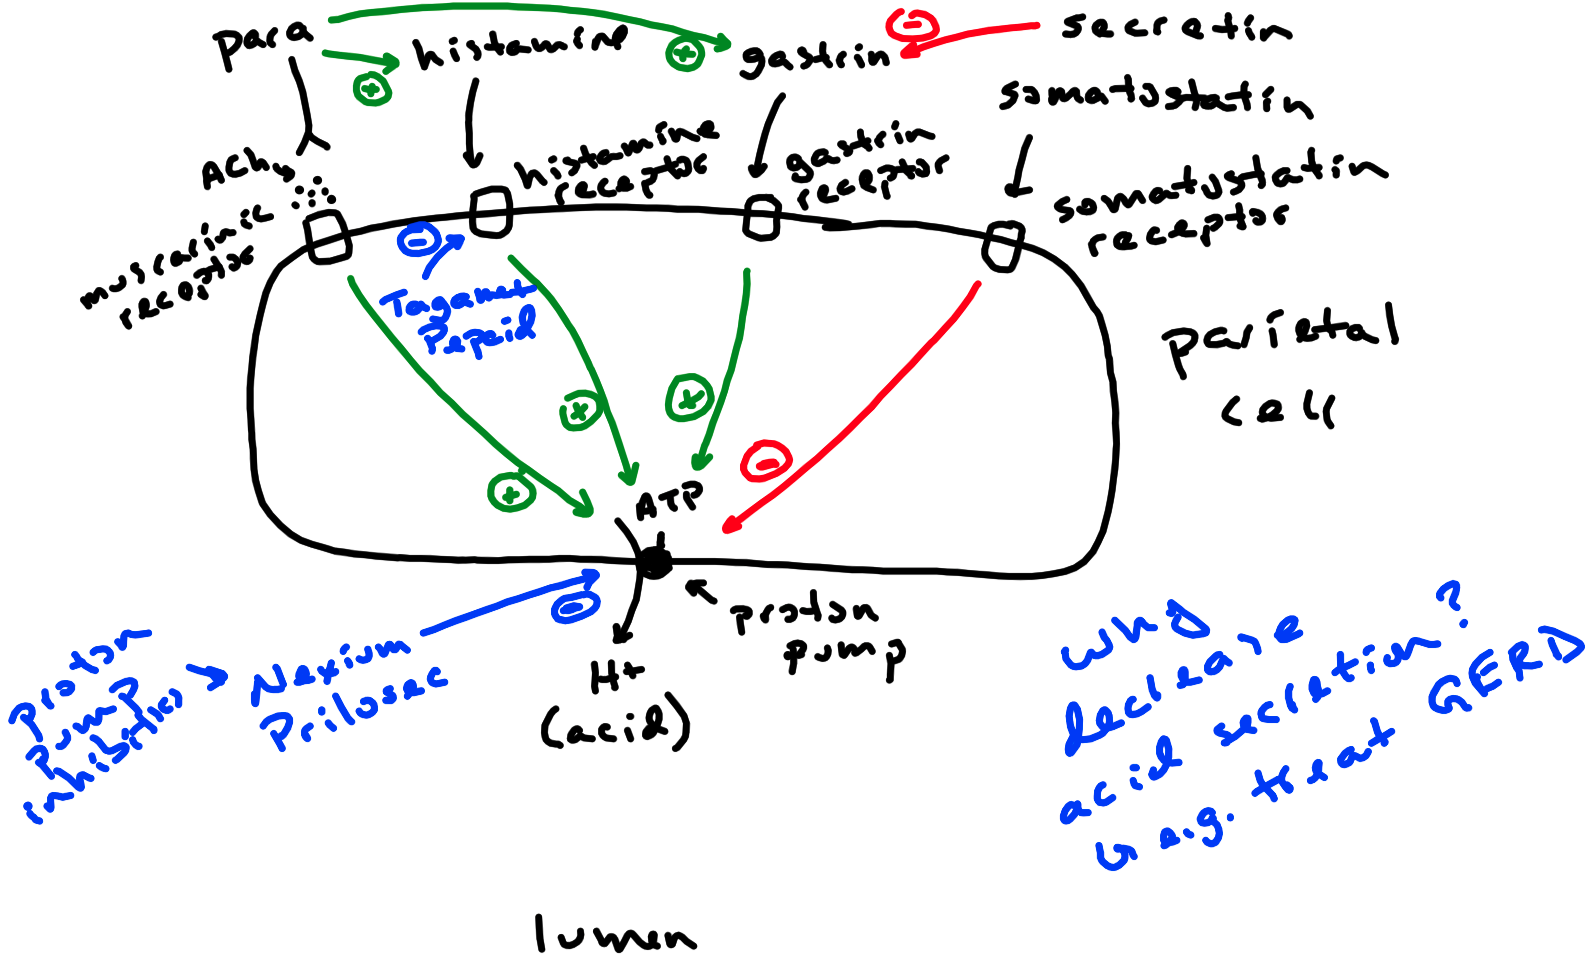 para
histamine
gastrin
secretin
somatostatin
ACh
muscarinic
receptor
histamine
receptor
gastrin
receptor
somatostatin
receptor
Tagamet
Pepcid
parietal
cell
ATP
proton
pump
H+
(acid)
proton
pump
inhibitors
Nexium
Prilosec
why
decrease
acid secretion?
e.g. treat GERD
lumen